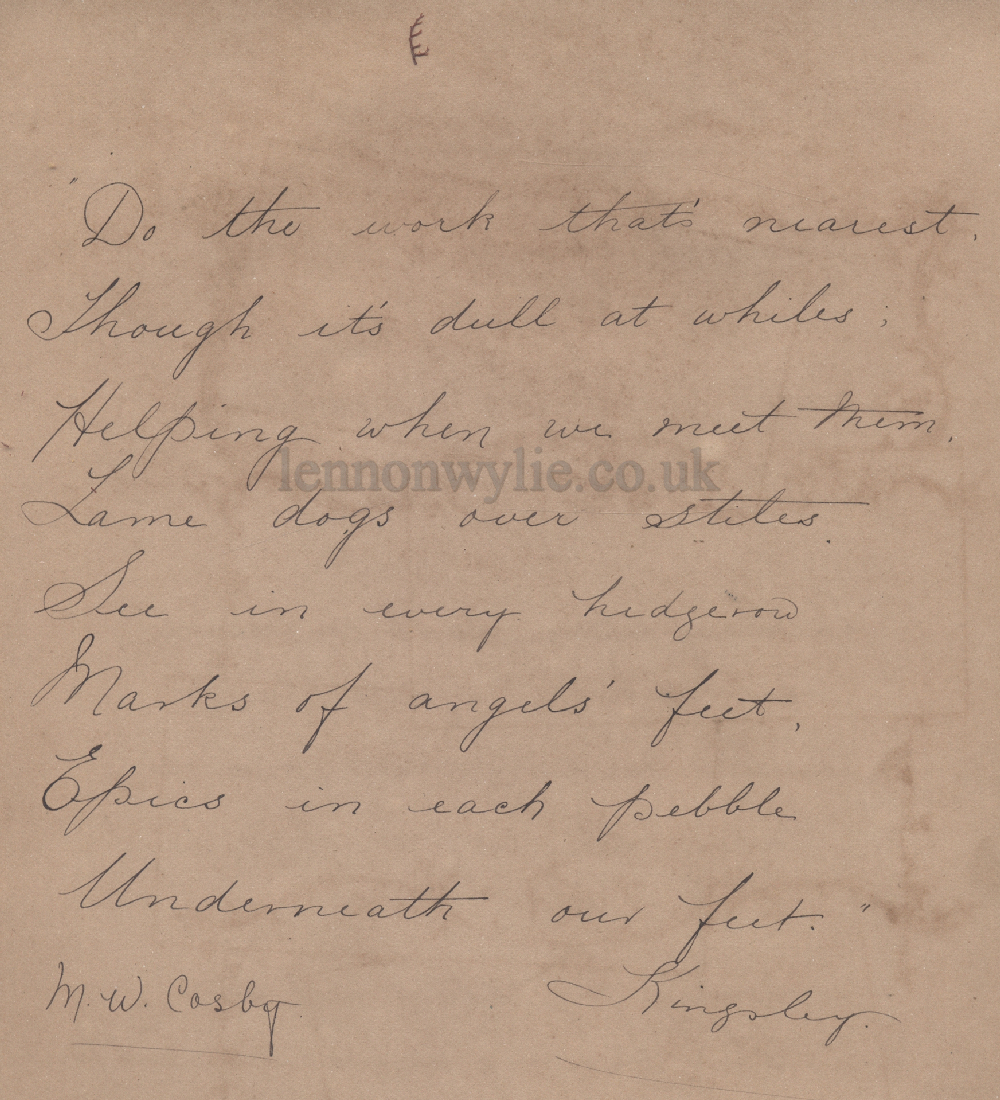 "Do the work that's nearest,
Though it's dull at whiles;
Helping when we meet them,
lennonwylie.co.uk
Lame dogs over stiles.
See in every hedgerow
Marks of angels' feet,
Epics in each pebble
Underneath our feet."
M. W. Cosby
Kingsley.